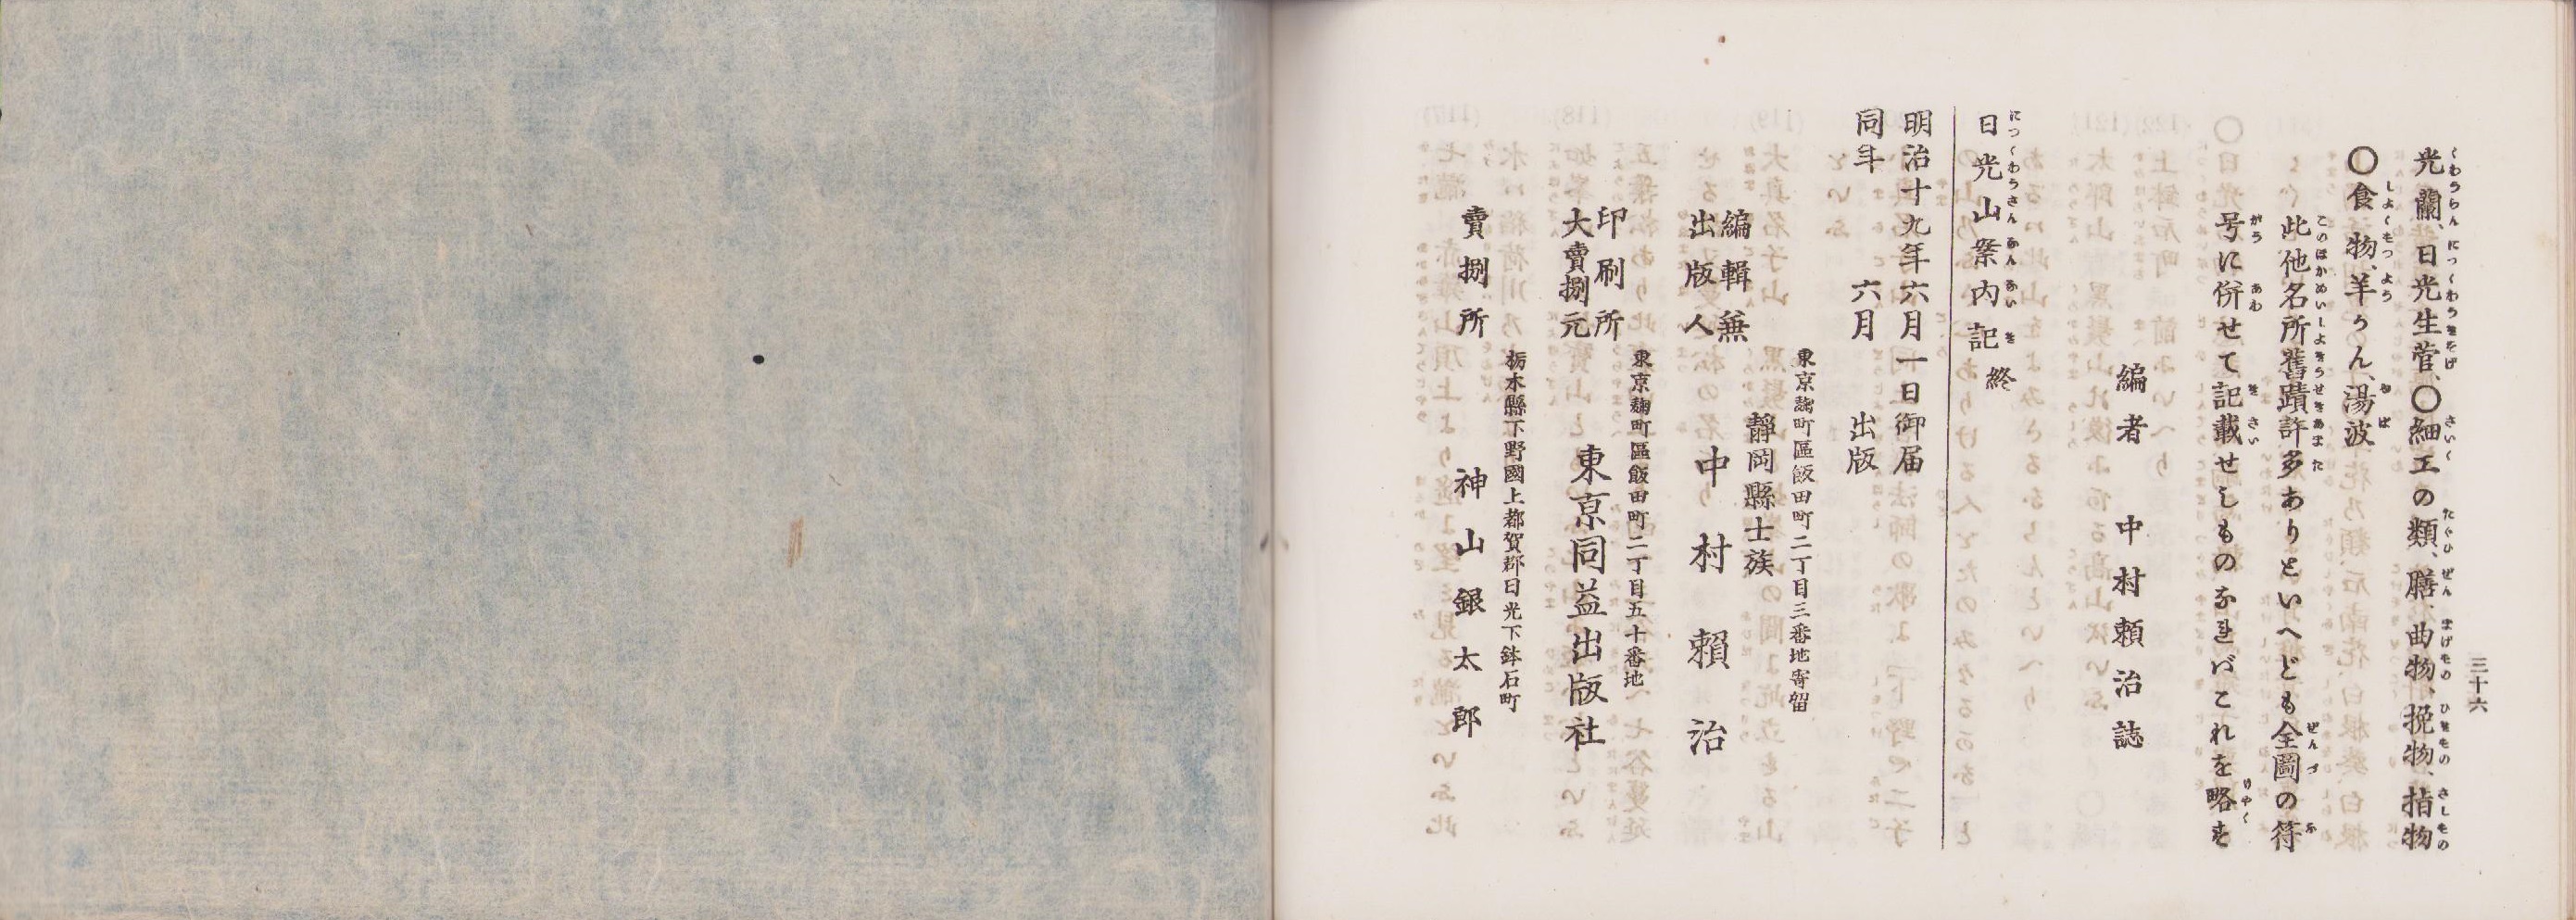 三十六
光蘭、日光生菅、〇細工の類、膳、曲物、挽物、指物
〇食物、羊うん、湯波
此他名所舊蹟許多ありといへども全圖の符
号に併せて記載せしものなれバこれを略す
編者 中村頼治誌
日光山案内記終
明治十九年六月一日御届
同年 六月 出版
東京麹町區飯田町二丁目三番地寄留
靜岡縣士族
編輯兼
出版人 中村賴治
東京麹町區飯田町二丁目五十番地
印刷所
大賣捌元 東京同益出版社
栃木縣下野國上都賀郡日光下鉢石町
賣捌所 神山銀太郎